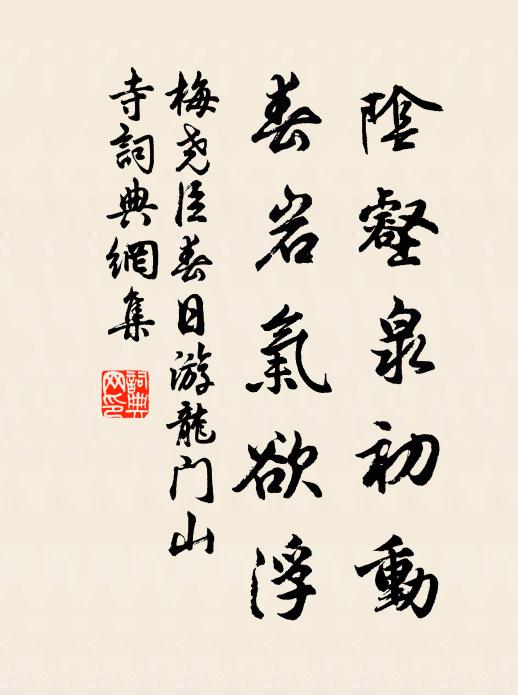 陰壑泉初動
春岩氣欲浮
梅尧臣春日游龍门山
寺詞典網集
詞典
网印